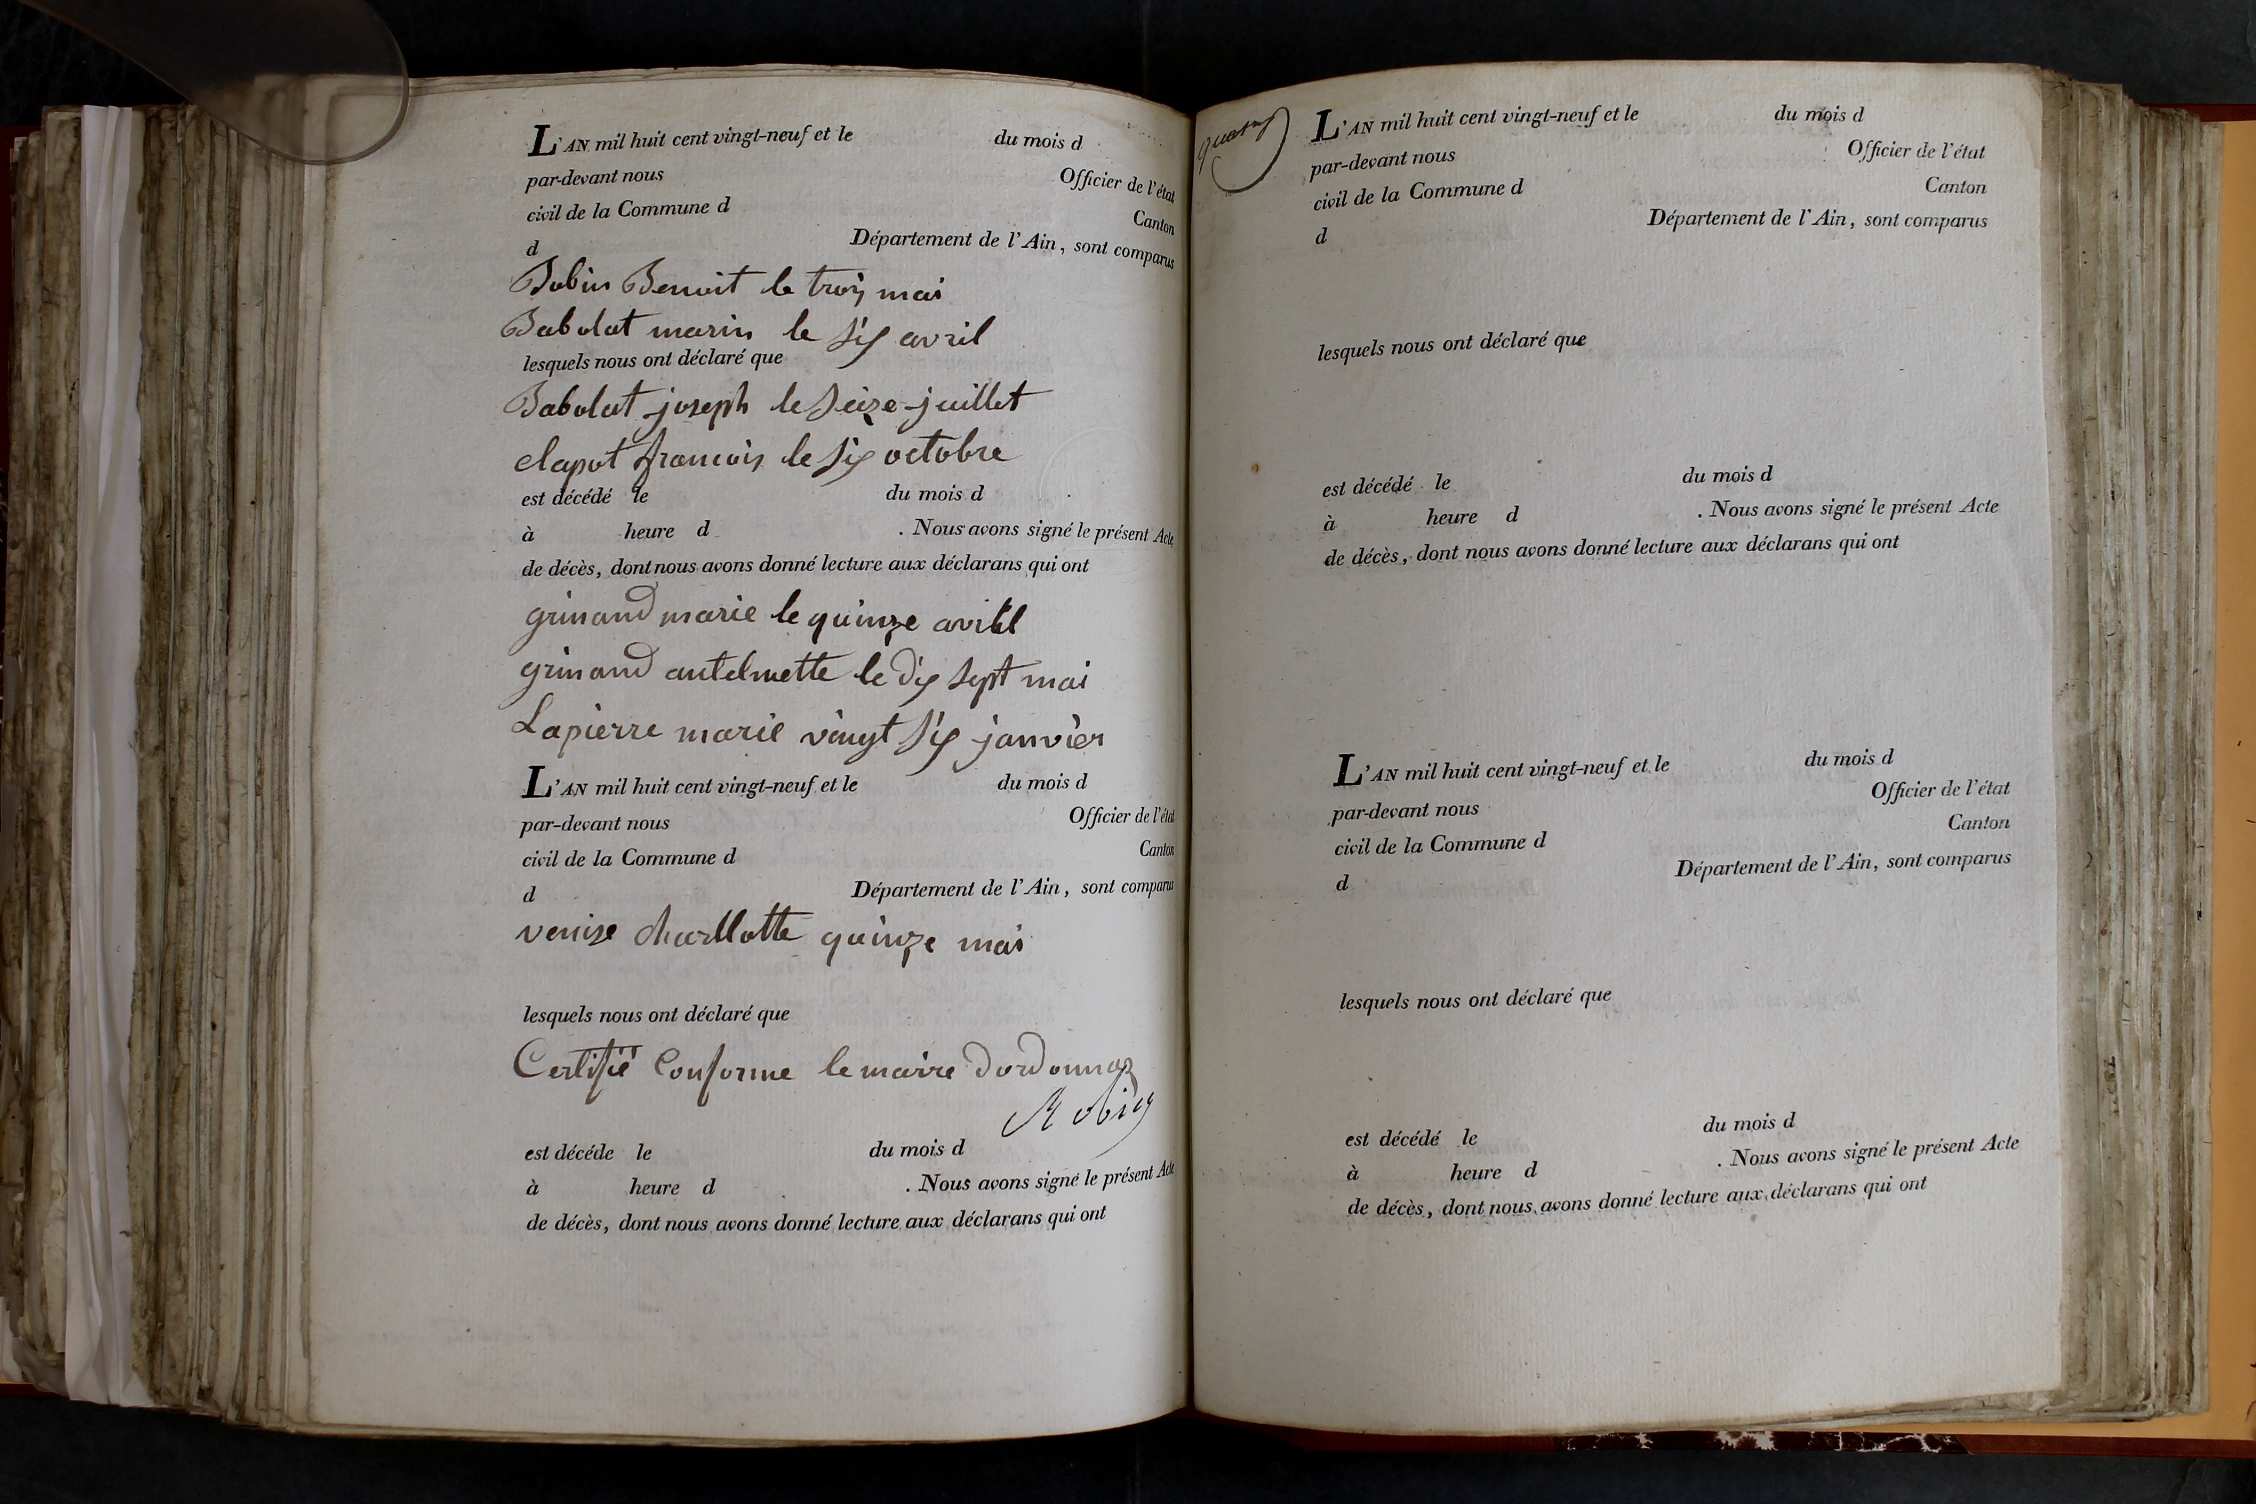 L'AN mil huit cent vingt-neuf et le du mois d
par-devant nous Officier de l'état
civil de la Commune d Canton
d Département de l'Ain, sont comparus
Bobin Benoit le trois mai
Babolat marin le six avril
lesquels nous ont déclaré que
Babolat joseph le seize juillet
clapot francois le six octobre
est décédé le du mois d
à heure d . Nous avons signé le présent Acte
de décès, dont nous avons donné lecture aux déclarans qui ont
grinand marie le quinze avril
grinand antelmette le dix sept mai
Lapierre marie vingt six janvier
L'AN mil huit cent vingt-neuf et le du mois d
par-devant nous Officier de l'état
civil de la Commune d Canton
d Département de l'Ain, sont comparus
venise charllotte quinze mai
lesquels nous ont déclaré que
Certifié Conforme le maire dordonnaz
Robin
est décéde le du mois d
à heure d . Nous avons signé le présent Acte
de décès, dont nous avons donné lecture aux déclarans qui ont
L'AN mil huit cent vingt-neuf et le du mois d
par-devant nous Officier de l'état
civil de la Commune d Canton
d Département de l'Ain, sont comparus
lesquels nous ont déclaré que
est décédé le du mois d
à heure d . Nous avons signé le présent Acte
de décès, dont nous avons donné lecture aux déclarans qui ont
L'AN mil huit cent vingt-neuf et le du mois d
par-devant nous Officier de l'état
civil de la Commune d Canton
d Département de l'Ain, sont comparus
lesquels nous ont déclaré que
est décédé le du mois d
à heure d . Nous avons signé le présent Acte
de décès, dont nous avons donné lecture aux déclarans qui ont